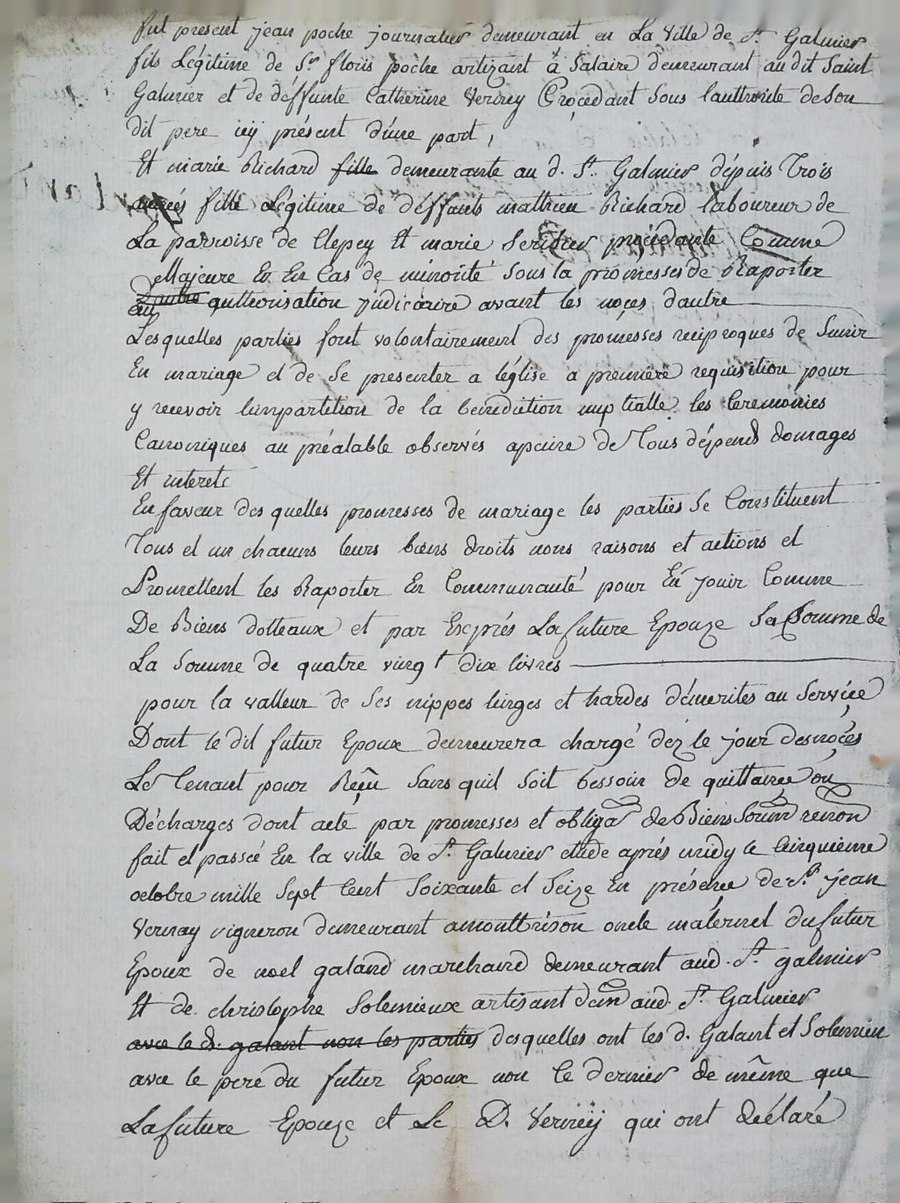 fut present jean poche journalier demeurant en La Ville de St Galmier
fils Légitime de Sr floris poche artizant a Salaire demeurant audit Saint
Galmier et de deffunte Catherine Verney procedant sous lauthorité de son
dit pere icy présent d'une part,
Et marie Richard fille demeurante au d. St. Galmier dépuis Trois
années fille Légitime de deffunts mathieu Richard laboureur de
La parroisse de Clepey Et marie procédante Comme
Majeure Et En Cas de minorité sous la promesses de Raporter
authorisation judiciaire avant les noces d'autre
Lesquelles parties font volontairement des promesses réciproques de Sunir
En mariage et de Se presenter a léglise a premiere requisition pour
y recevoir limpartition de la bénédiction nuptialle les Ceremonies
Canoniques au préalable observés apeine de Tous dépend domages
Et interets
En faveur des quelles promesses de mariage les parties Se Constituent
Tous et un chacuns leurs biens droits noms raisons et actions et
Promettent les Raporter En Communauté pour En jouir Comme
De Biens dotteaux et par Exprés La future Epouze Sa Somme de
La Somme de quatre vingt dix livres
pour la valleur de Ses nippes linges et hardes démerites au Service
Dont le dit futur Epoux demeurera chargé dez le jour desnoces
Le Tenant pour Reçu sans quil soit bessoin de quittance ou
Décharges dont acte par promesses et obliga de Biens renon
fait et passé En la ville de St. Galmier etude aprés midy le Cinquieme
octobre mille Sept Cent Soixante et Seize En présence de Sr. jean
Vernay vigneron demeurant amontbrison oncle maternel dufutur
Epoux de noel galand marchand demeurant aud. St. galmier
Et de christophe Solemieux artisant dem aud. St. Galmier
avec le d. galant non les parties desquelles ont les d. Galant et Solemieu
avec le pere du futur Epoux non le dernier de même que
La future Epouze et Le D. Verney qui ont déclaré